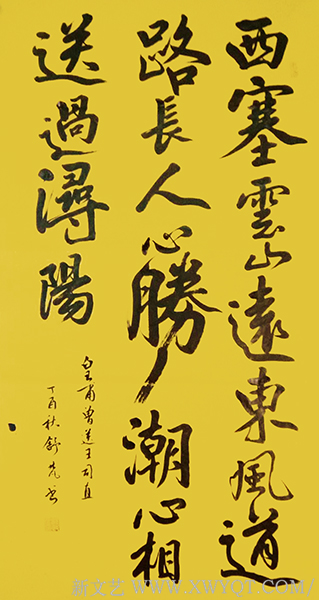 西塞雲山遠東風道
路長人心勝潮心相
送過潯陽
皇甫曾送王司直
丁酉秋舒
新文艺 WWW.XWYQT.COM/